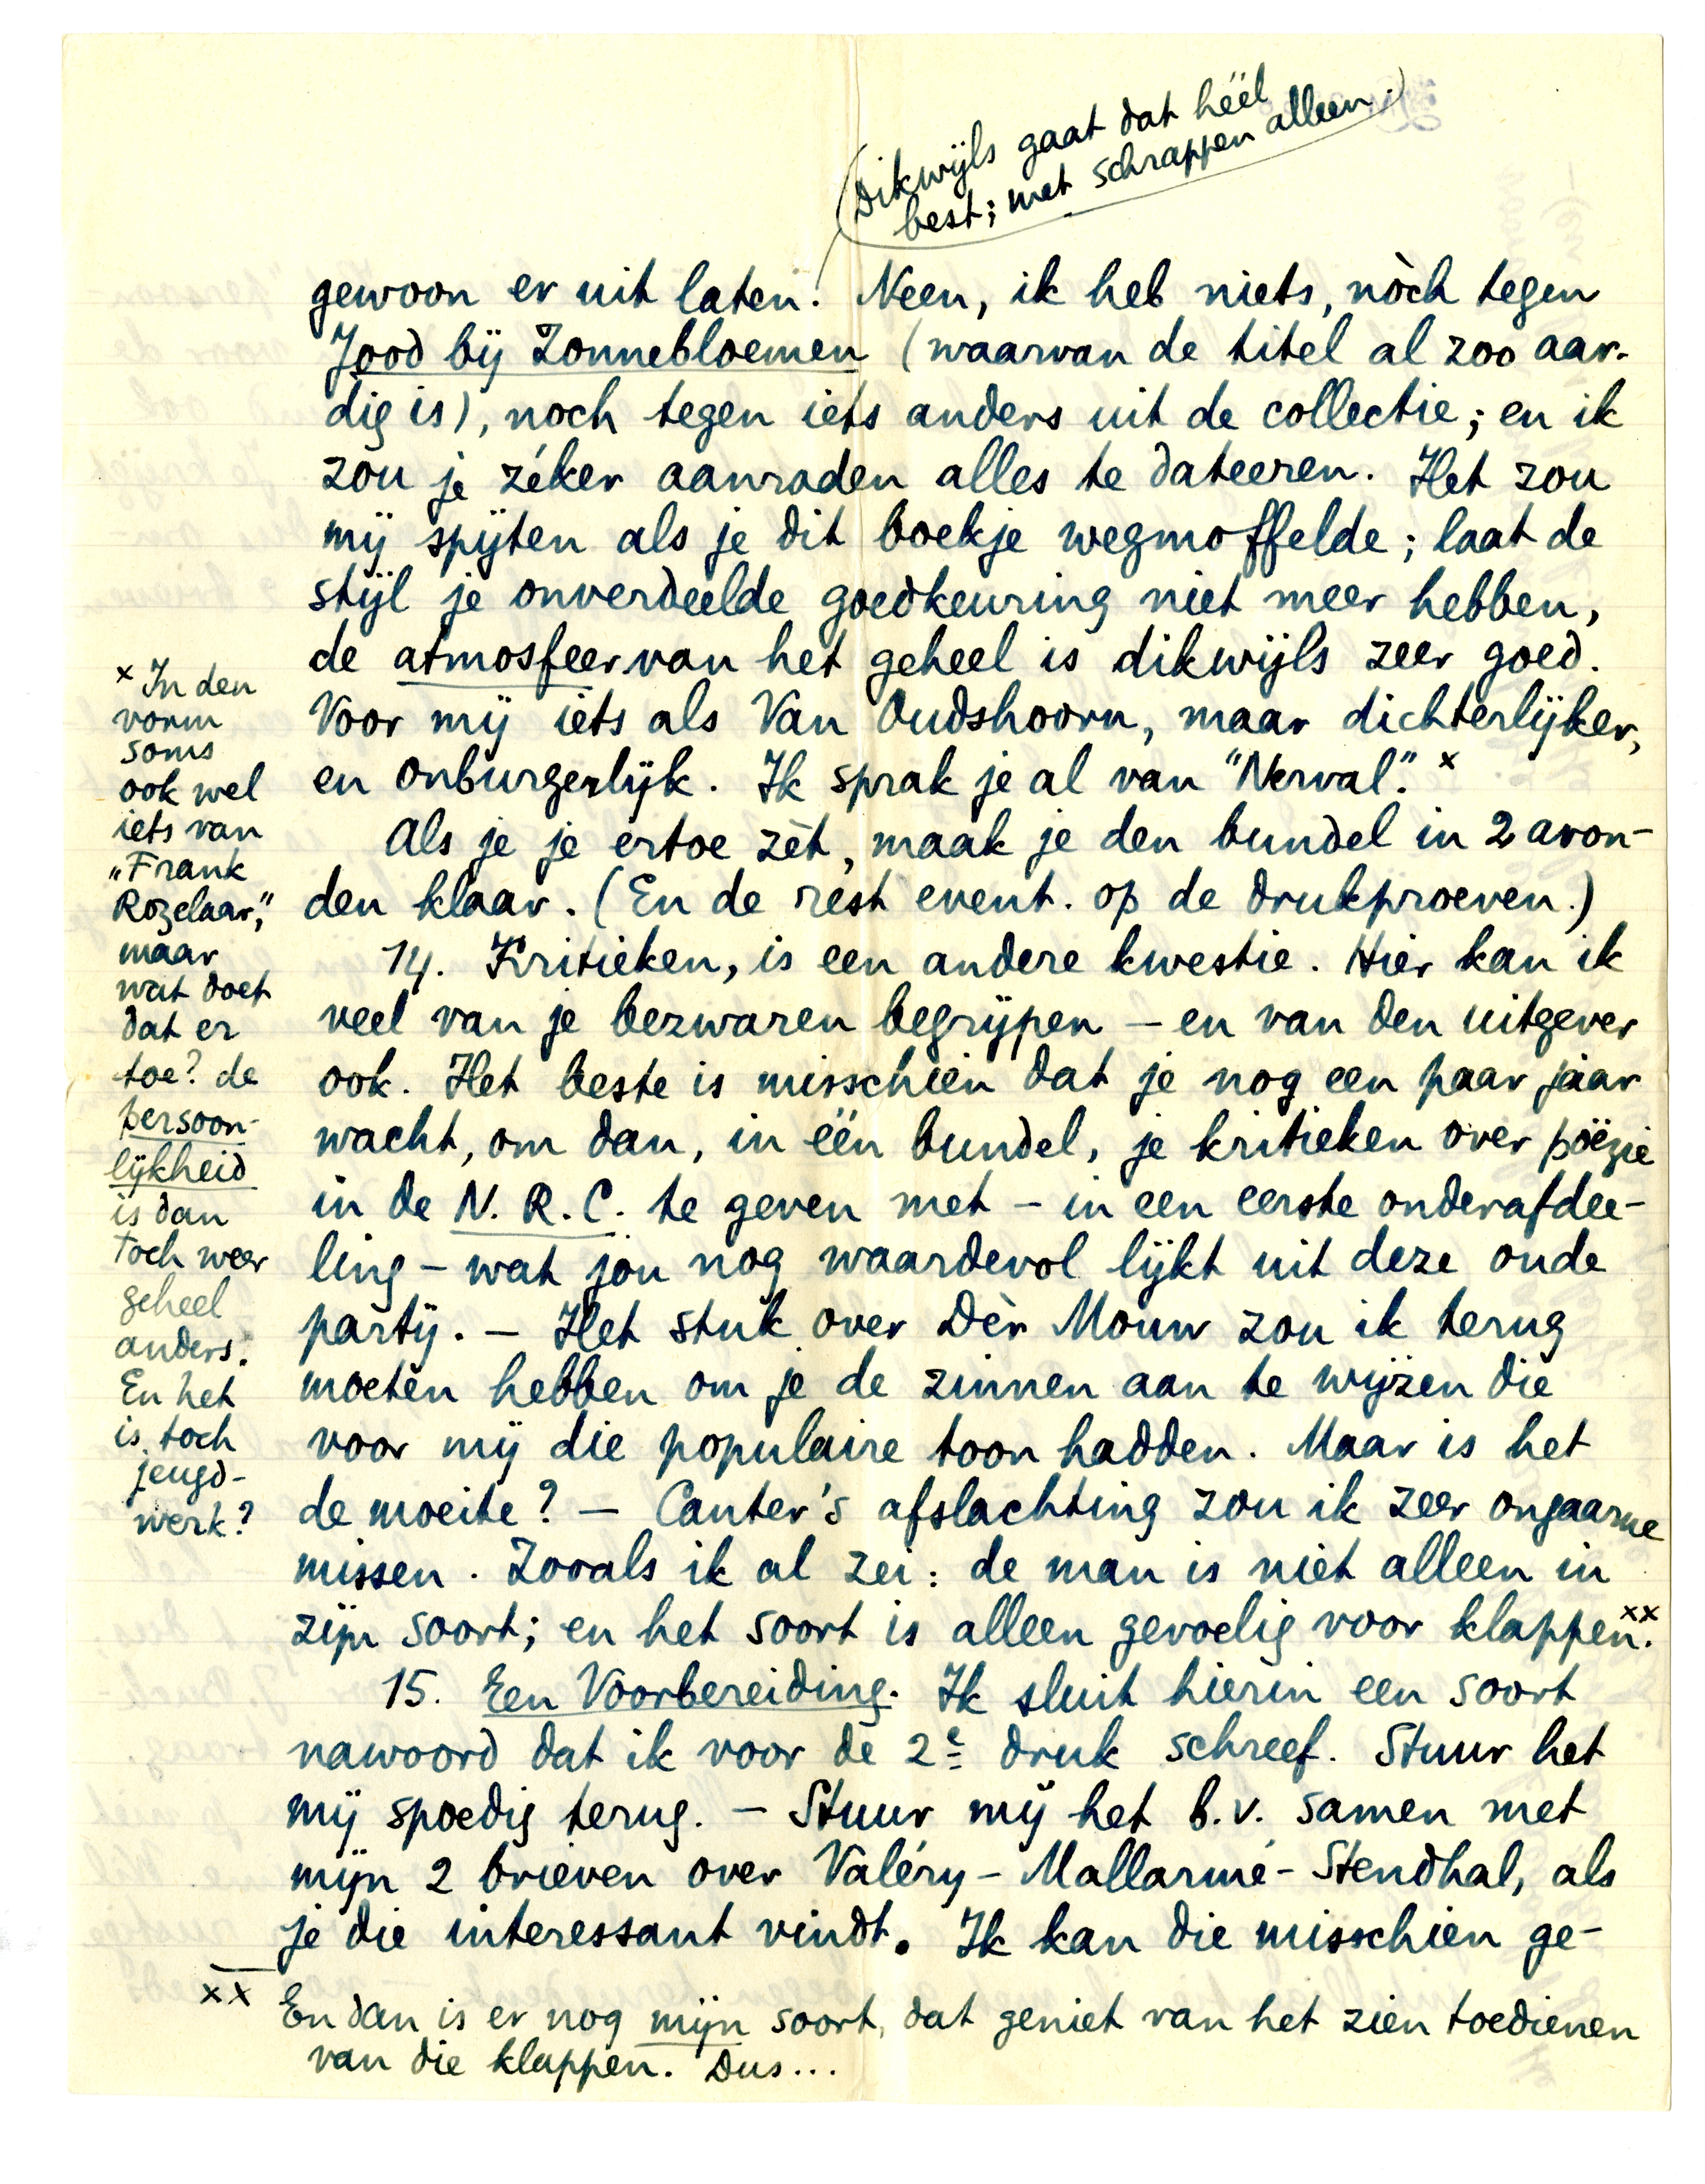 (Dikwijls gaat dat héél
best; met schrappen alleen.)
gewoon er uit laten! Neen, ik heb niets, nòch tegen
Jood bij Zonnebloemen (waarvan de titel al zoo aar-
dig is), noch tegen iets anders uit de collectie; en ik
zou je zéker aanraden alles te dateeren. Het zou
mij spijten als je dit boekje wegmoffelde; laat de
stijl je onverdeelde goedkeuring niet meer hebben,
de atmosfeer van het geheel is dikwijls zeer goed.
Voor mij iets als Van Oudshoorn, maar dichterlijker,
en onburgerlijk. Ik sprak je al van "Nerval". x
Als je je ertoe zèt, maak je den bundel in 2 avon-
den klaar. (En de rest event. op de drukproeven.)
14. Kritieken, is een andere kwestie. Hier kan ik
veel van je bezwaren begrijpen – en van den uitgever
ook. Het beste is misschien dat je nog een paar jaar
wacht, om dan, in één bundel, je kritieken over poëzie
in de N.R.C. te geven met – in een eerste onderafdee-
ling – wat jou nog waardevol lijkt uit deze oude
partij. – Het stuk over Dèr Mouw zou ik terug
moeten hebben om je de zinnen aan te wijzen die
voor mij die populaire toon hadden. Maar is het
de moeite? – Canter's afslachting zou ik zeer ongaarne
missen. Zooals ik al zei: de man is niet alleen in
zijn soort; en het soort is alleen gevoelig voor klappen. xx
15. Een Voorbereiding. Ik sluit hierin een soort
nawoord dat ik voor de 2e druk schreef. Stuur het
mij spoedig terug. – Stuur mij het b.v. samen met
mijn 2 brieven over Valéry – Mallarmé – Stendhal, als
je die interessant vindt. Ik kan die misschien ge-
x In den
vorm
soms
ook wel
iets van
„Frank
Rozelaar,"
maar
wat doet
dat er
toe? de
persoon-
lijkheid
is dan
toch weer
geheel
anders.
En het
is toch
jeugd-
werk?
xx En dan is er nog mijn soort, dat geniet van het zien toedienen
van die klappen. Dus...